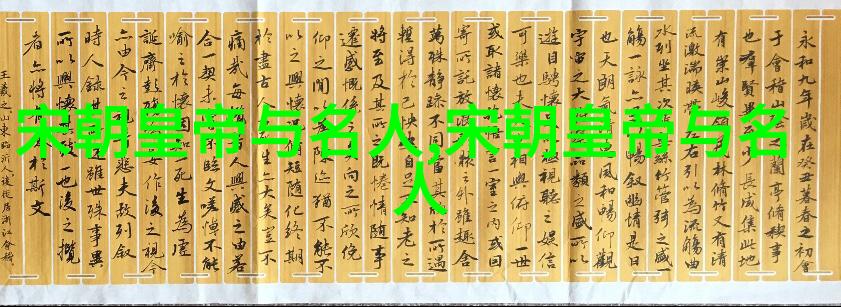 宋朝皇帝与名人,宋朝皇帝与名
人
永和九年歲在癸丑暮春之初會
于會稽山之蘭亭脩稧事
也羣賢畢至少長咸集此地
有崇山峻領林脩竹又有清
流激湍暎帶左右引以為流觴曲
水列坐其次絲竹管弦之盛一
觴一詠暢敘幽情是日
也天朗風和暢仰觀
宇宙之大品類之盛所以
遊目騁懷視聽之娛信
可樂也夫相與俯仰一世
或取諸懷悟言一室之內或因
寄所託放浪之外雖趣舍
萬殊靜躁不同當其欣於所遇
暫得於己快自足知老之
將至及其所之既惓情隨事
遷感慨係之向之所欣俛
仰之閒以陳迹猶不能不
以之興懷況短隨化終期
於盡古人生亦大矣豈不
痛哉每人興感之由若
合一契未臨文嗟悼不能
喻之於懷固知死生為虛
誕齊彭殤妄作後之視今
亦由今之悲夫故列敘
時人錄其雖世殊事異
所以興懷致一也後之攬
者亦將有於斯文
王羲之山東臨沂人後徙居浙江會稽